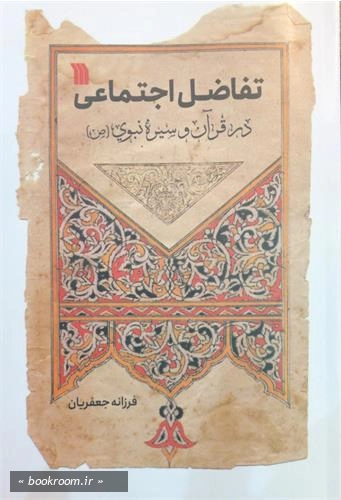 تفاضل اجتماعی
در قرآن و سیره نبوی (ص)
فرزانه جعفریان
« bookroom.ir »